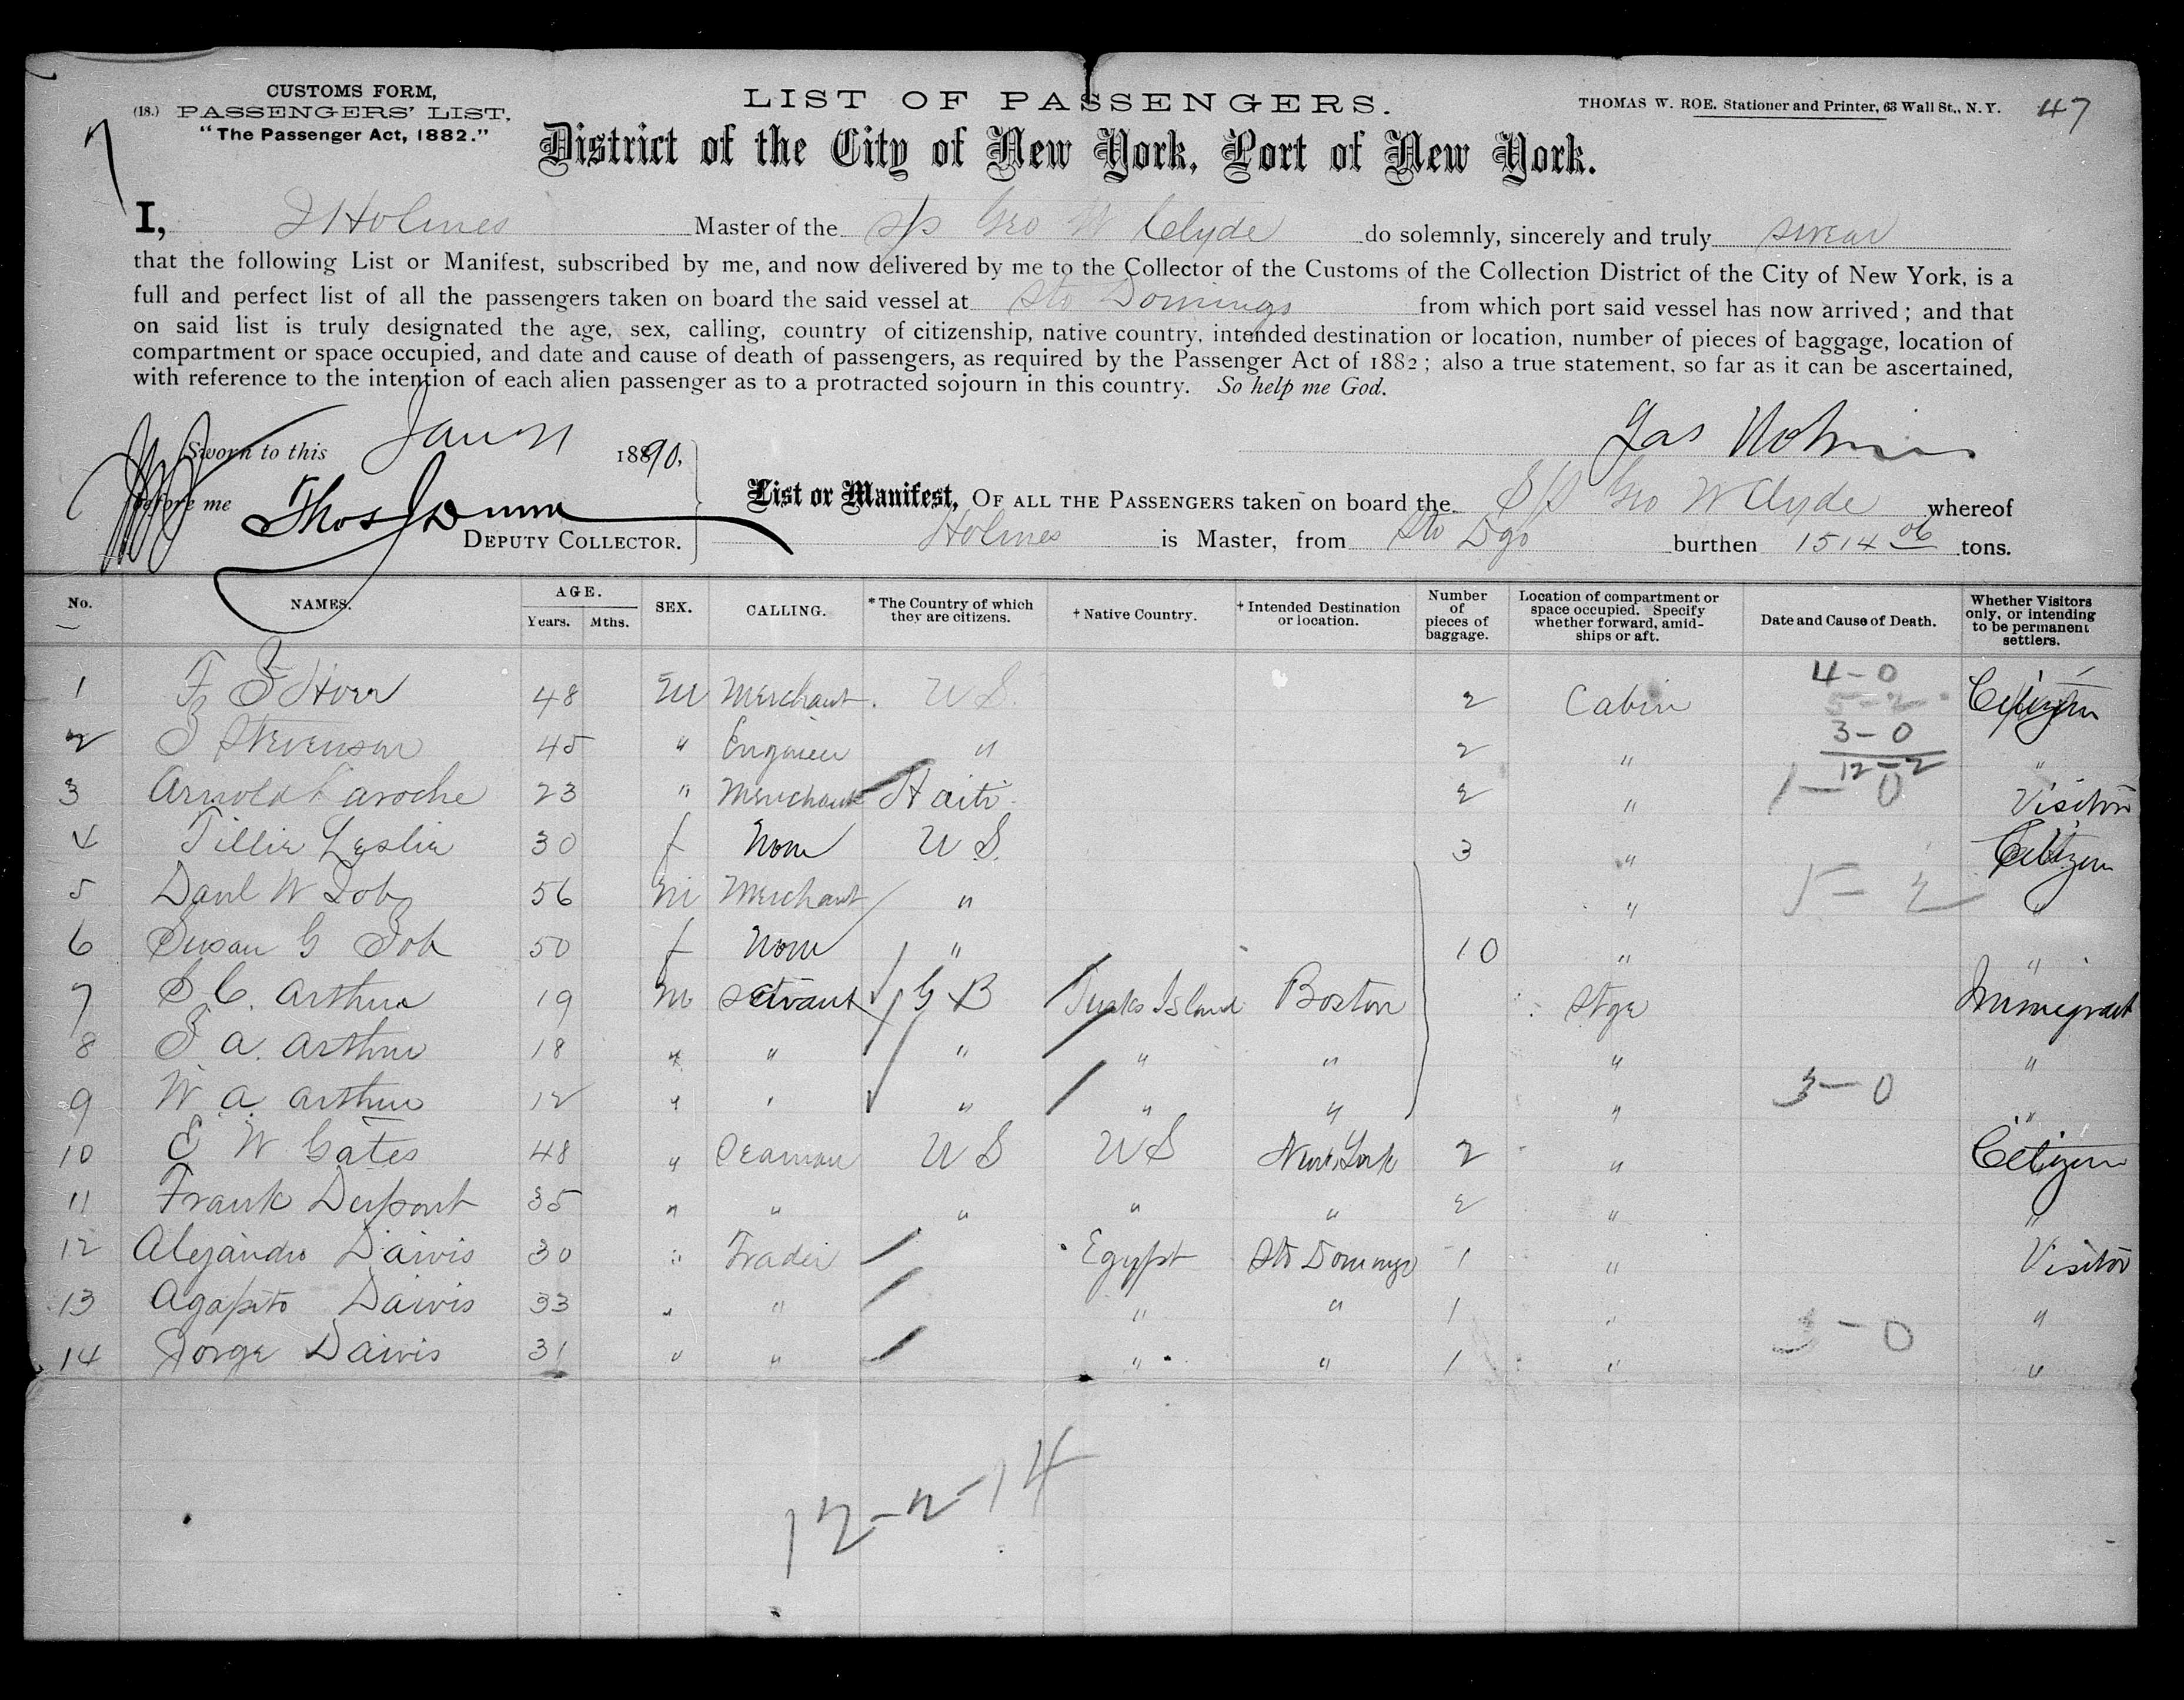 CUSTOMS FORM,
(18.) PASSENGERS' LIST,
"The Passenger Act, 1882."
LIST OF PASSENGERS.
THOMAS W. ROE, Stationer and Printer, 63 Wall St., N. Y. 47
District of the City of New York, Port of New York.
I, J Holmes Master of the s/s Geo W Clyde do solemnly, sincerely and truly swear
that the following List or Manifest, subscribed by me, and now delivered by me to the Collector of the Customs of the Collection District of the City of New York, is a
full and perfect list of all the passengers taken on board the said vessel at Sto Domingo from which port said vessel has now arrived; and that
on said list is truly designated the age, sex, calling, country of citizenship, native country, intended destination or location, number of pieces of baggage, location of
compartment or space occupied, and date and cause of death of passengers, as required by the Passenger Act of 1882; also a true statement, so far as it can be ascertained,
with reference to the intention of each alien passenger as to a protracted sojourn in this country. So help me God.
Sworn to this Jany 1890, Jas Holmes
before me Thos J Dunn
DEPUTY COLLECTOR.
List or Manifest, OF ALL THE PASSENGERS taken on board the S/S Geo W Clyde whereof
Holmes is Master, from Sto Dgo burthen 1514 06 tons.
No. NAMES. AGE. Years. Mths. SEX. CALLING. * The Country of which they are citizens. † Native Country. † Intended Destination or location. Number of pieces of baggage. Location of compartment or space occupied. Specify whether forward, amidships or aft. Date and Cause of Death. Whether Visitors only, or intending to be permanent settlers.
4-0
1 48 M Merchant U S. 2 Cabin 5-2 Citizen
2 Stevenson 45 " Engineer " 2 " 3-0 "
12-2
3 Arnold Laroche 23 " Merchant Haiti 2 " 1-0 Visitor
4 Tillie Leslie 30 f None U S. 3 " Citizen
5 Danl W Job 56 M Merchant " " 5-2 "
6 Susan G Job 50 f None " 10 " "
7 S C. Arthur 19 M Servant G B Turks Island Boston Stge Immigrant
8 A. Arthur 18 " " " " " " "
9 W A. Arthur 12 " " " " " " 3-0 "
10 E W Gates 48 " Seaman U S U S New York 2 " Citizen
11 Frank Dupont 35 " " " " " 2 " "
12 Alejandro Daivis 30 " Trader Egypt Sto Domingo 1 " Visitor
13 Agapito Daivis 33 " " " " 1 " "
14 Jorge Daivis 31 " " " " 1 " 3-0 "
12-2-14